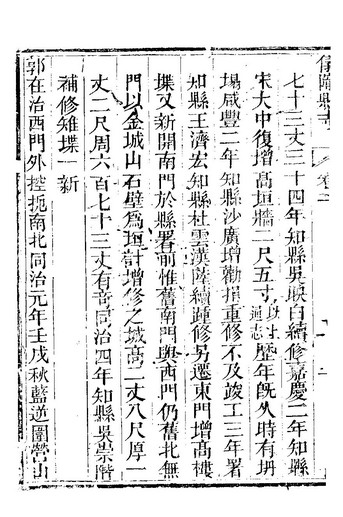 儀隴縣志 卷二
七十三丈三十四年知縣吳映白續修嘉慶二年知縣
宋大中復增高垣牆二尺五寸以上通志歷年既久時有坍
塌咸豐二年知縣沙廣增勸捐重修不及竣工三年署
知縣王濟宏知縣杜雲漢蔭續踵修另遷東門增高樓
堞又新開南門於縣署前惟舊南門與西門仍舊北無
門以金城山石壁為垣計增修之城高二丈八尺厚一
丈二尺周六百七十三丈有奇同治四年知縣吳崇階
補修雉堞一新
郭在治西門外控扼南北同治元年壬戌秋藍逆圍營山